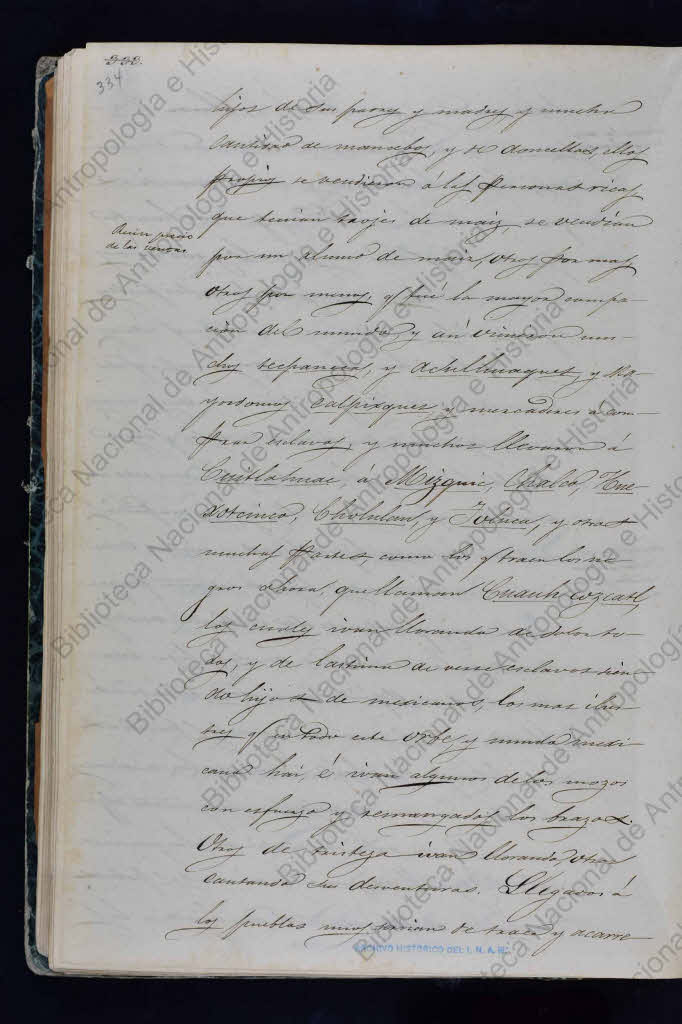 333.
334
hijos de sus padres y madres y mucha
cantidad de mancebos, y de doncellas, ellos
propios se vendieron á las personas ricas
que tenian trojes de maiz, se vendían
por un almud de maiz, otros por mas
otros por menos, q fué la mayor compa-
cion del mundo, y aí vinieron mu-
chos tecpanecas, y Aculhuaques, y Ma-
yordomos Calpixques, y mercaderes á com-
prar esclavos, y muchos llevaron á
Cuitlahuac, á Mizquic, Chalco, Hue-
xotcinco, Cholulan, y Toluca, y otras
muchas partes, como los q traen los ne-
gros ahora, que llaman Cuauh cozcatl,
los cuales ivan llorando de dolor to-
dos, y de lastima de verse esclavos sien-
do hijos de mexicanos, los mas ilus-
tres q en todo este Orbe, y mundo mexi-
cano hai, é ivan algunos de los mozos
con esfuerzo y remangados los brazos.
Otros de tristeza ivan llorando, otros
cantando sus desventuras. Llegados á
los pueblos unos servian de traer y acarre
de las
ARCHIVO HISTÓRICO DEL I. N. A. H.
Biblioteca Nacional de Antropología e Historia